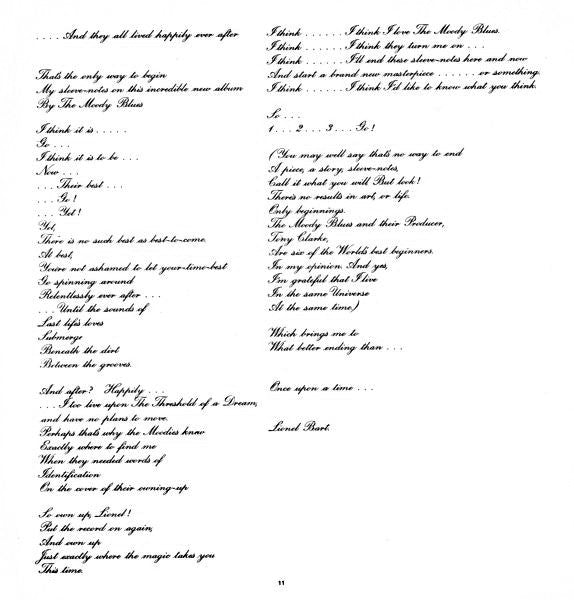 . . . . And they all lived happily ever after
Thats the only way to begin
My sleeve-notes on this incredible new album
By The Moody Blues
I think it is . . . . .
Go . . .
I think it is to be . . .
Now . . .
. . . Their best . . .
. . . Go !
. . . Yet !
Yet,
There is no such best as best-to-come.
At best,
You're not ashamed to let your-time-best
Go spinning around
Relentlessly ever after . . .
. . . Until the sounds of
Last life's loves
Submerge
Beneath the dirt
Between the grooves.
And after? Happily . . .
. . . I too live upon The Threshold of a Dream,
and have no plans to move.
Perhaps that's why the Moodies knew
Exactly where to find me
When they needed words of
Identification
On the cover of their owning-up
So own up, Lionel !
Put the record on again,
And own up
Just exactly where the magic takes you
This time.
I think . . . . . . . I think I love The Moody Blues.
I think . . . . . . . I think they turn me on . . .
I think . . . . . . . I'll end these sleeve-notes here and now
And start a brand new masterpiece . . . . . . . or something.
I think . . . . . . . I think I'd like to know what you think.
So . . .
1 . . . 2 . . . 3 . . . Go !
( You may well say that's no way to end
A piece, a story, sleeve-notes,
Call it what you will But look !
There's no results in art, or life.
Only beginnings.
The Moody Blues and their Producer,
Tony Clarke,
Are six of the World's best beginners.
In my opinion. And yes,
I'm grateful that I live
In the same Universe
At the same time.)
Which brings me to
What better ending than . . .
Once upon a time . . .
Lionel Bart.
11